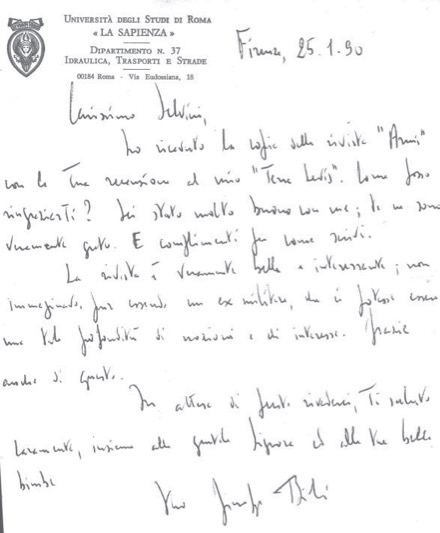 UNIVERSITÀ DEGLI STUDI DI ROMA
« LA SAPIENZA »
DIPARTIMENTO N. 37
IDRAULICA, TRASPORTI E STRADE
00184 Roma - Via Eudossiana, 18
Firenze, 25.1.90
Carissimo
ho ricevuto la copia della rivista "Armi"
con la Tua recensione al mio "Terra . Come posso
ringraziarti? Sei stato molto buono con me; te ne sono
veramente grato. E complimenti per come scrivi.
La rivista è veramente bella e interessante; non
immaginavo, pur essendo un ex militare, che ci potesse essere
una tale profondità di nozioni e di interesse. Grazie
anche di questo.
In attesa di rivederci, Ti saluto
caramente, insieme alla gentile Signora ed alle tue belle
bimbe
Tuo